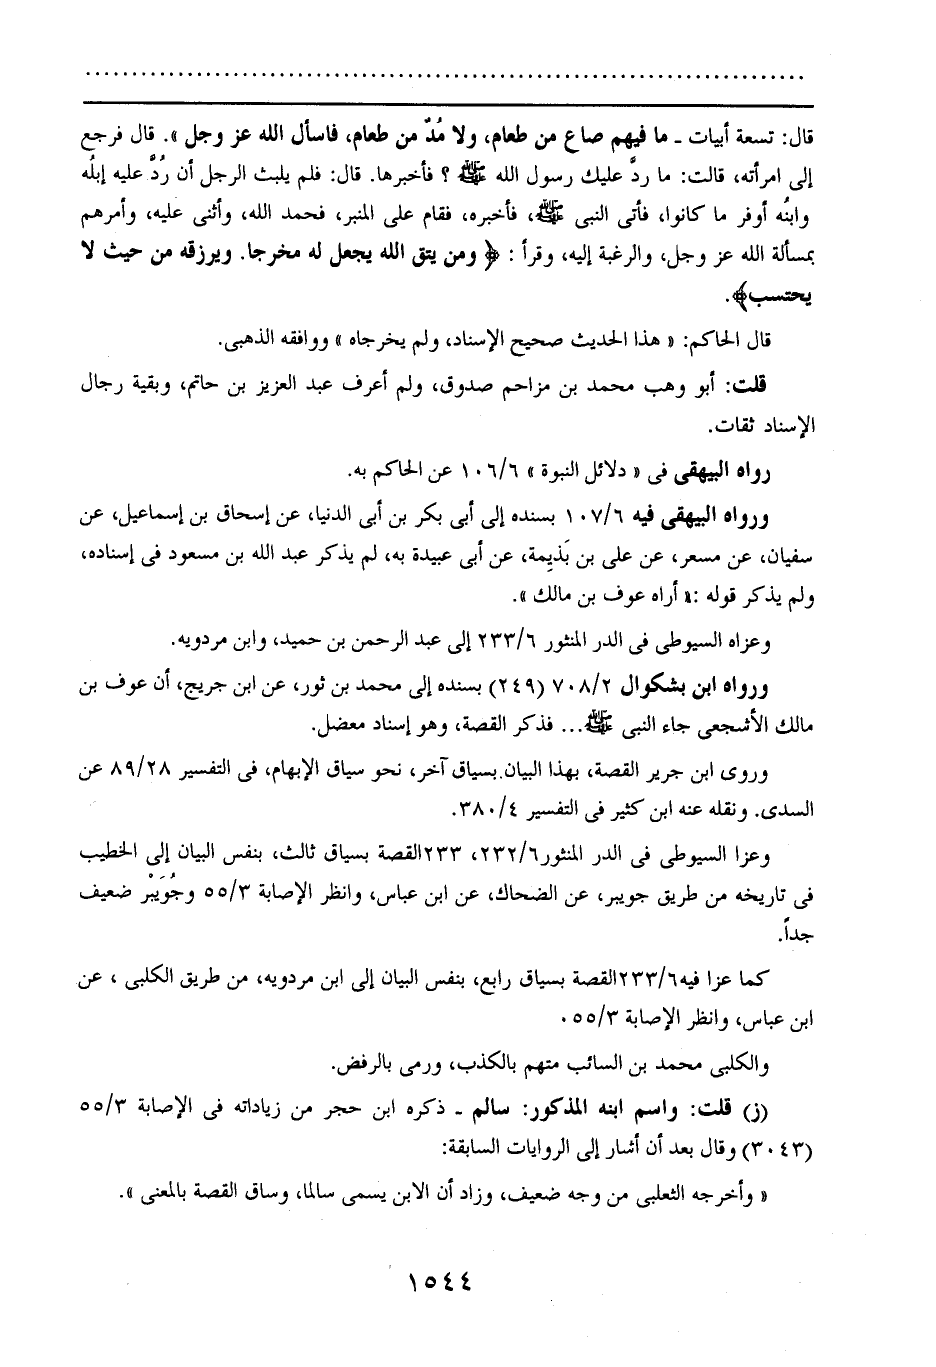 قال: تسعة أبيات ـ ما فيهم صاع من طعام، ولا مُدّ من طعام، فاسأل الله عز وجل ». قال فرجع
إلى امرأته، قالت: ما ردَّ عليك رسول الله ﷺ ؟ فأخبرها. قال: فلم يلبث الرجل أن رُدَّ عليه إبلُه
وابنُه أوفر ما كانوا، فأتى النبى ﷺ، فأخبره، فقام على المنبر، فحمد الله، وأثنى عليه، وأمرهم
بمسألة الله عز وجل، والرغبة إليه، وقرأ : ﴿ ومن يتق الله يجعل له مخرجا. ويرزقه من حيث لا
يحتسب﴾.
قال الحاكم: « هذا الحديث صحيح الإسناد، ولم يخرجاه » ووافقه الذهبى.
قلت: أبو وهب محمد بن مزاحم صدوق، ولم أعرف عبد العزيز بن حاتم، وبقية رجال
الإسناد ثقات.
رواه البيهقى فى « دلائل النبوة » ١٠٦/٦ عن الحاكم به.
ورواه البيهقى فيه ١٠٧/٦ بسنده إلى أبى بكر بن أبى الدنيا، عن إسحاق بن إسماعيل، عن
سفيان، عن مسعر، عن على بن بَذِيمة، عن أبى عبيدة به، لم يذكر عبد الله بن مسعود فى إسناده،
ولم يذكر قوله :« أراه عوف بن مالك ».
وعزاه السيوطى فى الدر المنثور ٢٣٣/٦ إلى عبد الرحمن بن حميد، وابن مردويه.
ورواه ابن بشكوال ٧٠٨/٢ (٢٤٩) بسنده إلى محمد بن ثور، عن ابن جريج، أن عوف بن
مالك الأشجعى جاء النبى ﷺ... فذكر القصة، وهو إسناد معضل.
وروى ابن جرير القصة، بهذا البيان بسياق آخر، نحو سياق الإبهام، فى التفسير ٨٩/٢٨ عن
السدى. ونقله عنه ابن كثير فى التفسير ٣٨٠/٤.
وعزا السيوطى فى الدر المنثور٢٣٢/٦، ٢٣٣القصة بسياق ثالث، بنفس البيان إلى الخطيب
فى تاريخه من طريق جويبر، عن الضحاك، عن ابن عباس، وانظر الإصابة ٥٥/٣ وجُوَيْبْر ضعيف
جداً.
كما عزا فيه٢٣٣/٦القصة بسياق رابع، بنفس البيان إلى ابن مردويه، من طريق الكلبى ، عن
ابن عباس، وانظر الإصابة ٥٥/٣.
والكلبى محمد بن السائب متهم بالكذب، ورمى بالرفض.
(ز) قلت: واسم ابنه المذكور: سالم ـ ذكره ابن حجر من زياداته فى الإصابة ٥٥/٣
(٣٠٤٣) وقال بعد أن أشار إلى الروايات السابقة:
« وأخرجه الثعلبى من وجه ضعيف، وزاد أن الابن يسمى سالما، وساق القصة بالمعنى ».
١٥٤٤